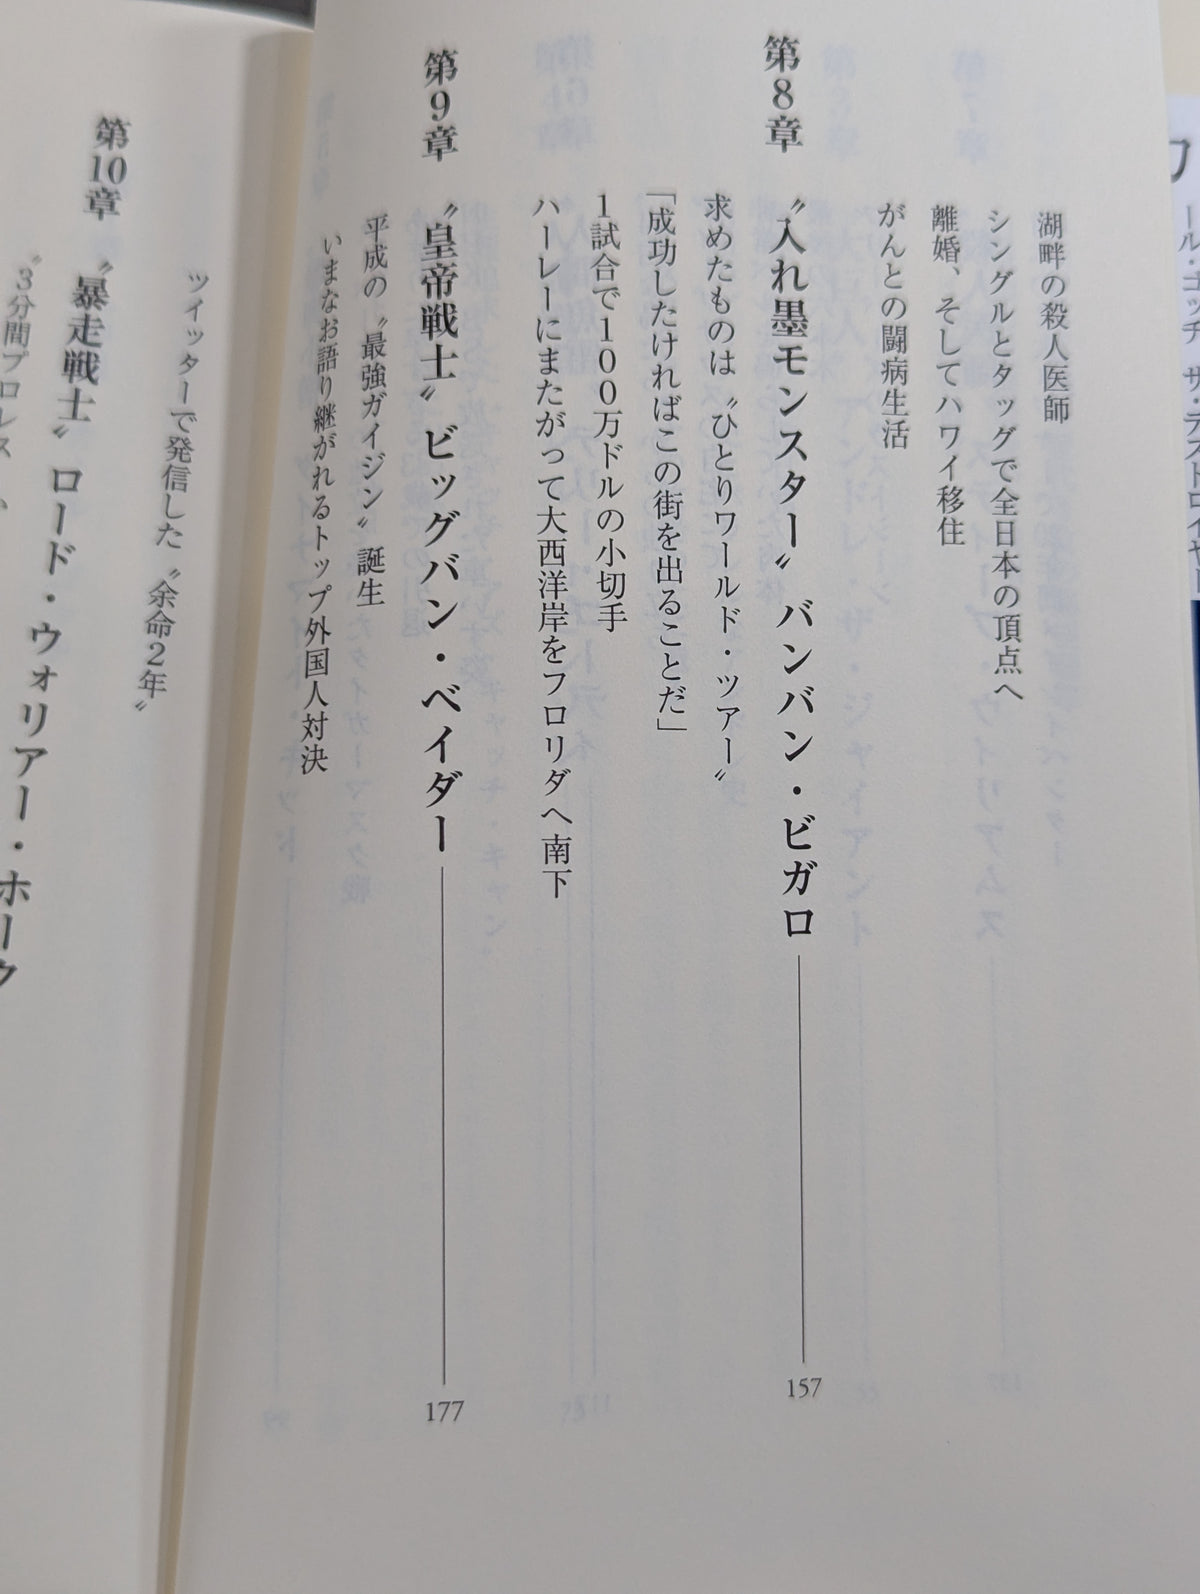 湖畔の殺人医師
シングルとタッグで全日本の頂点へ
離婚、そしてハワイ移住
がんとの闘病生活
第8章 〝入れ墨モンスター〟バンバン・ビガロ 157
求めたものは〝ひとりワールド・ツアー〟
「成功したければこの街を出ることだ」
1試合で100万ドルの小切手
ハーレーにまたがって大西洋岸をフロリダへ南下
第9章 〝皇帝戦士〟ビッグバン・ベイダー 177
平成の〝最強ガイジン〟誕生
いまなお語り継がれるトップ外国人対決
ツイッターで発信した〝余命2年〟
第10章 〝暴走戦士〟ロード・ウォリアー・ホーク
〝3分間プロレス